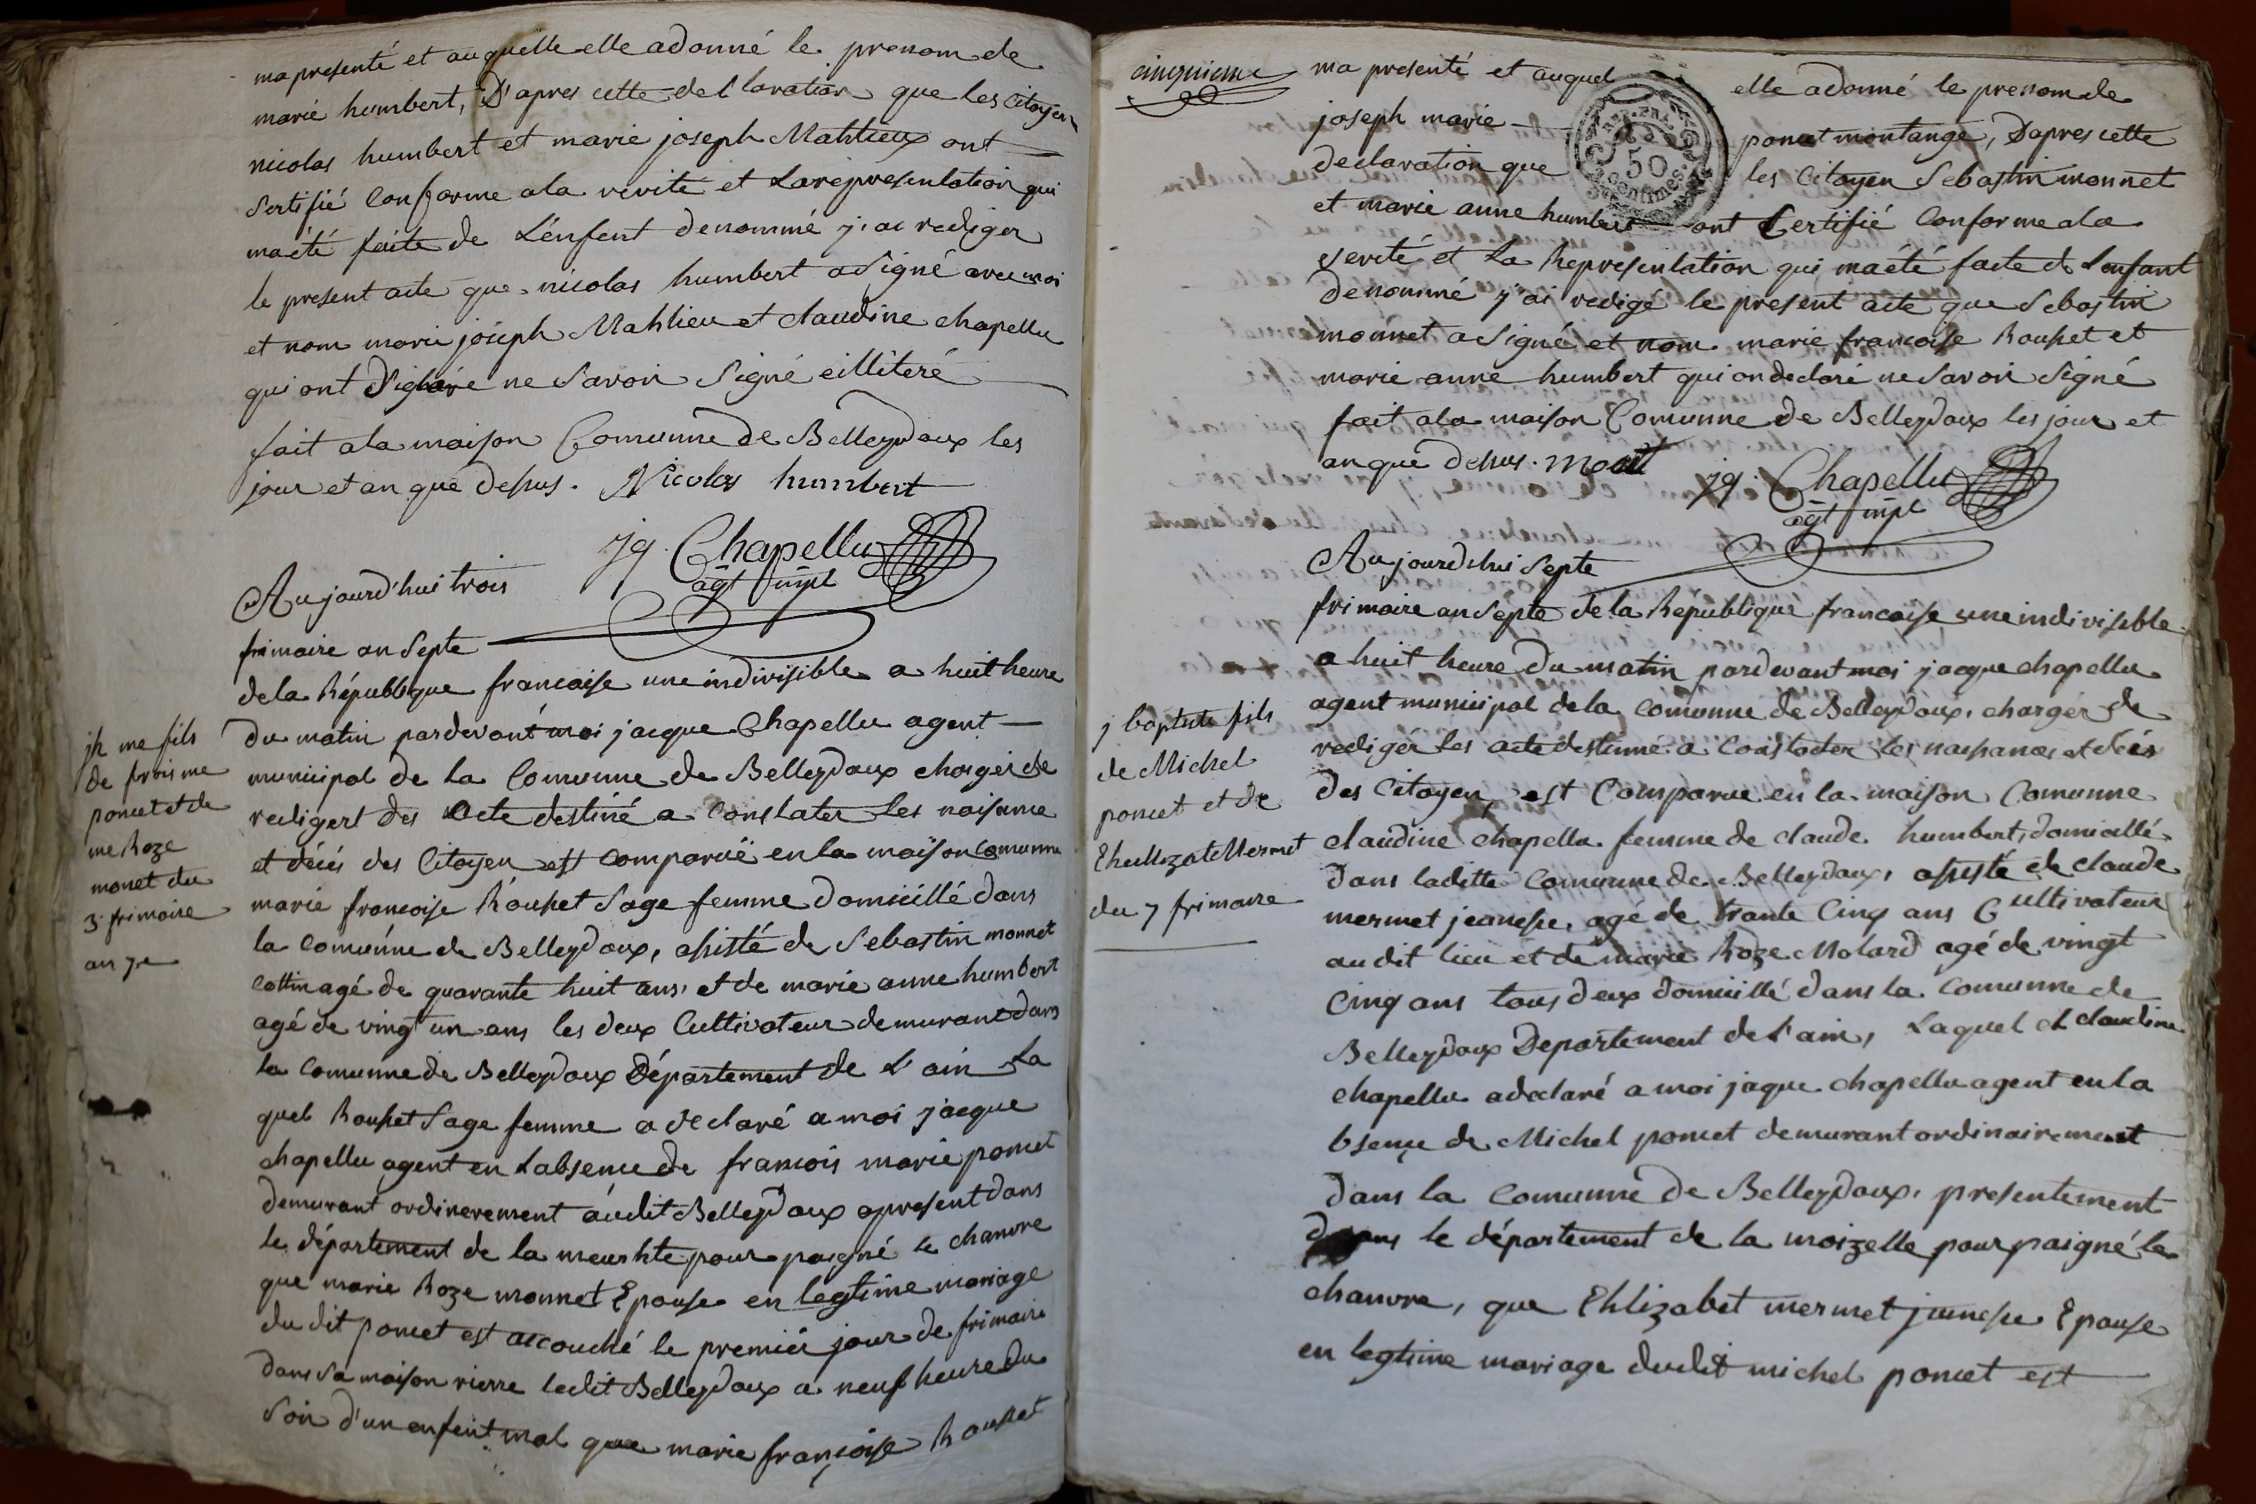 ma presenté et auquelle elle a donné le prenom de
marie humbert, D'apres cette dellaration que les Citoyen
nicolas humbert et marie joseph Mahlieux ont
Sertifié Conforme a la verite et La representation qui
ma été faite de L'enfent denommé j'ai rediger
le present acte que nicolas humbert a Signé avec moi
et nom marie joseph Mahlieu et claudine chapellu
qui ont Diglaré ne Savoir Signé eilliteré
fait a la maison Comunne de Belleydoux les
jour et an que desus. Nicolas humbert
Jq. Chapellu
agt mpl
Aujourd'hui trois
frimaire an Septe
de la République francaise une indivisible a huit heure
du matin pardevant moi jacque Chapellu agent
municipal de la Comunne de Belleydoux charger de
redigert des Acte destiné a Constater les naisance
et décés des Citoyen est comparuë en la maison comunne
marie francoise Rousset Sage femme domicillé dans
la comunne de Belleydoux, assisté de Sebastin monnet
cottin agé de quarante huit ans, et de marie anne humbert
agé de vingt un ans les deux Cultivateur demurant dans
la Comunne de Belleydoux Département de L'ain La
quel Rousset Sage femme a declaré a moi jacque
chapellu agent en Labsence de francois marie poncet
demurant ordinerement audit Belleydoux apresent dans
le département de la meurhte pour paigné le chanvre
que marie Roze monnet Epouse en legtime mariage
du dit poncet est accouché le premier jour de frimaire
dans sa maison rierre ledit Belleydoux a neuf heure du
Soir d'un enfent mal que marie françoise Rousset
jh me fils
de frois me
poncet et de
me Roze
monet du
3 frimaire
an 7e
cinquieme
ma presenté et auquel elle a donné le prenom de
joseph marie poncet montange, D'apres cette
declaration que les Citoyen Sebastin monnet
et marie anne humbert ont Certifié Conforme a la
verité et La Representation qui ma été faite de Lenfant
denommé j'ai redigé le present acte que Sebastin
monnet a Signé et nom marie francoise Rousset et
marie anne humbert qui on declaré ne Savoir Signé
fait a la maison Comunne de Belleydoux les jour et
an que desus.
REP. FRA.
50
centimes
Jq. Chapellu
agt mpl
Aujourd'hui Septe
frimaire an Septe de la Republique francaise une indivisible
a huit heure du matin pardevant moi jacque chapellu
agent municipal de la comunne de Belleydoux, charger de
rediger les acte destinné a Constater les naissances et décés
des Citoyen, est Comparue en la maison Comunne
claudine chapellu femme de claude humbert, domicillé
dans laditte Comunne de Belleydoux, assisté de claude
mermet jeanesse, agé de trante Cinq ans Cultivateur
audit lieu et de marie Roze Molard agé de vingt
Cinq ans tous deux domicillé dans la Comunne de
Belleydoux Departement de L'ain, Laquel dt claudine
chapellu a declaré a moi jaque chapellu agent en la
bsençe de Michel poncet demurant ordinairement
dans la Comunne de Belleydoux, presentement
dans le département de la moizelle pour paigné le
chanvre, que Ehlizabet mermet junesse Epouse
en legtime mariage dudit michel poncet est
j baptiste fils
de Michel
poncet et de
Ehellizate Mermet
du 7 frimaire